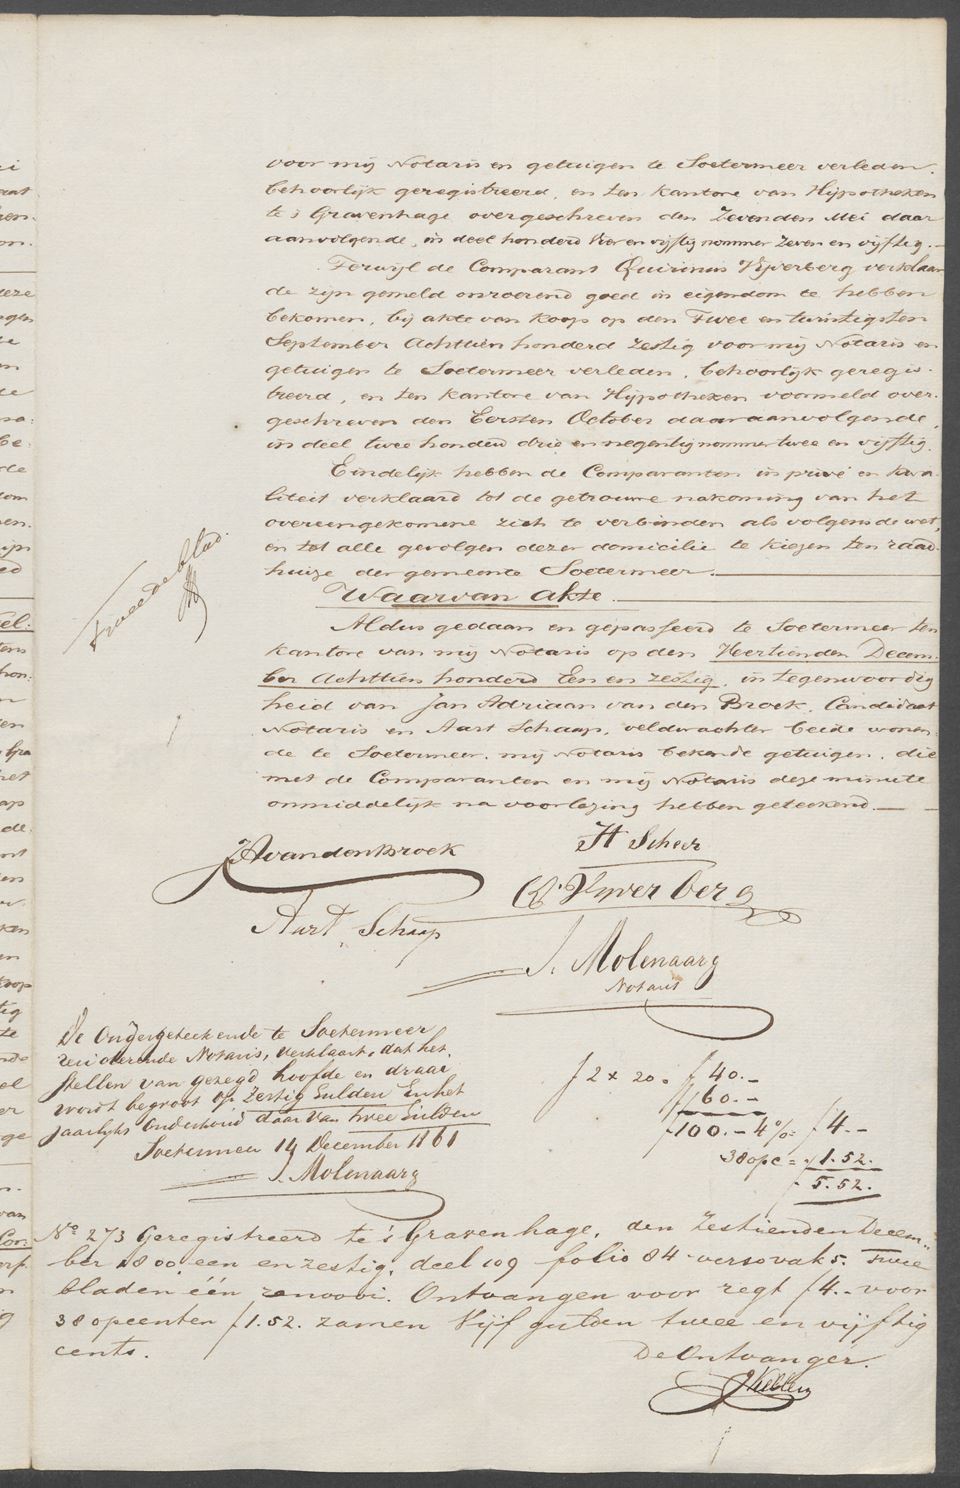 voor mij Notaris en getuigen te Soetermeer verleden.
behoorlijk geregistreerd, en ten kantore van Hijpotheken
te 's Gravenhage overgeschreven den Zevenden Mei daar
aanvolgende, in deel honderd Vier en vijftig nommer Zeven en vijftig.
Terwijl de Comparant Quirinus Vijverberg verklaar
de zijn gemeld onroerend goed in eigendom te hebben
bekomen, bij akte van Koop op den Twee en twintigsten
September Achttien honderd Zestig voor mij Notaris en
getuigen te Soetermeer verleden, behoorlijk geregis-
treerd, en ten kantore van Hijpotheken voormeld over-
geschreven den Eersten October daaraanvolgende,
in deel twee honderd drie en negentig nommer twee en vijftig.
Eindelijk hebben de Comparanten in privé en kwa-
liteit verklaard tot de getrouwe nakoming van het
overeengekomene zich te verbinden als volgens de wet,
en tot alle gevolgen dezer domicilie te kiezen ten raad-
huize der gemeente Soetermeer.
Tweede blad.
Waarvan akte.
Aldus gedaan en gepasseerd te Soetermeer ten
kantore van mij Notaris op den Veertienden Decem-
ber Achttien honderd Een en zestig, in tegenwoordig
heid van Jan Adriaan van den Broek, Candidaat
Notaris en Aart Schaap, veldwachter beide wonen-
de te Soetermeer, mij Notaris bekende getuigen, die
met de Comparanten en mij Notaris deze minute
onmiddelijk na voorlezing hebben geteekend.
JAvandenBroek
H Scheer
Q. Vijverberg
Aart Schaap
J. Molenaar
Notaris
De Ondergeteekende te Soetermeer
resideerende Notaris, verklaart, dat het
stellen van gezegd hoofde en draai
wordt begroot op Zestig Gulden En het
jaarlijks Onderhoud daar van twee Gulden
Soetermeer 14 December 1861
J. Molenaar
f 2 x 20 = f 40.-
f 60.-
f 100.- 4% = f 4.-
38 opc = f 1.52.
f 5.52.
No 273 Geregistreerd te 's Gravenhage, den Zestienden Decem-
ber 1800 een en zestig, deel 109 folio 84 verso vak 5. Twee
bladen één renvooi. Ontvangen voor regt f 4.- voor
38 opcenten f 1.52. zamen Vijf gulden twee en vijftig
cents.
De Ontvanger.